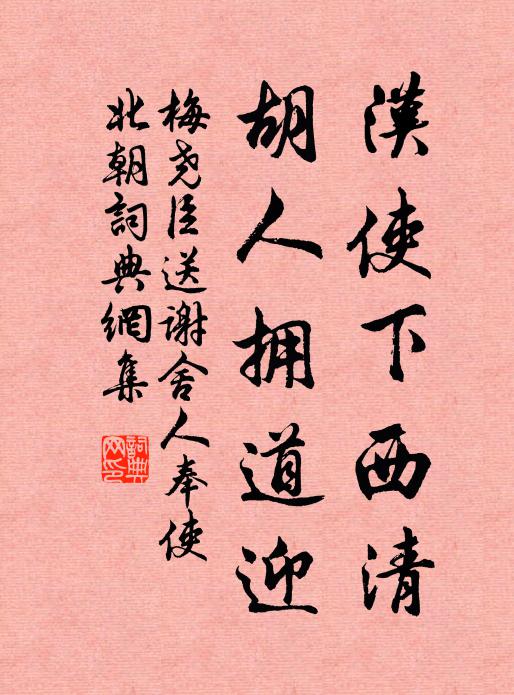 漢使下西清
胡人拥道迎
梅尧臣送谢舍人奉使
北朝詞典網集
詞典网印